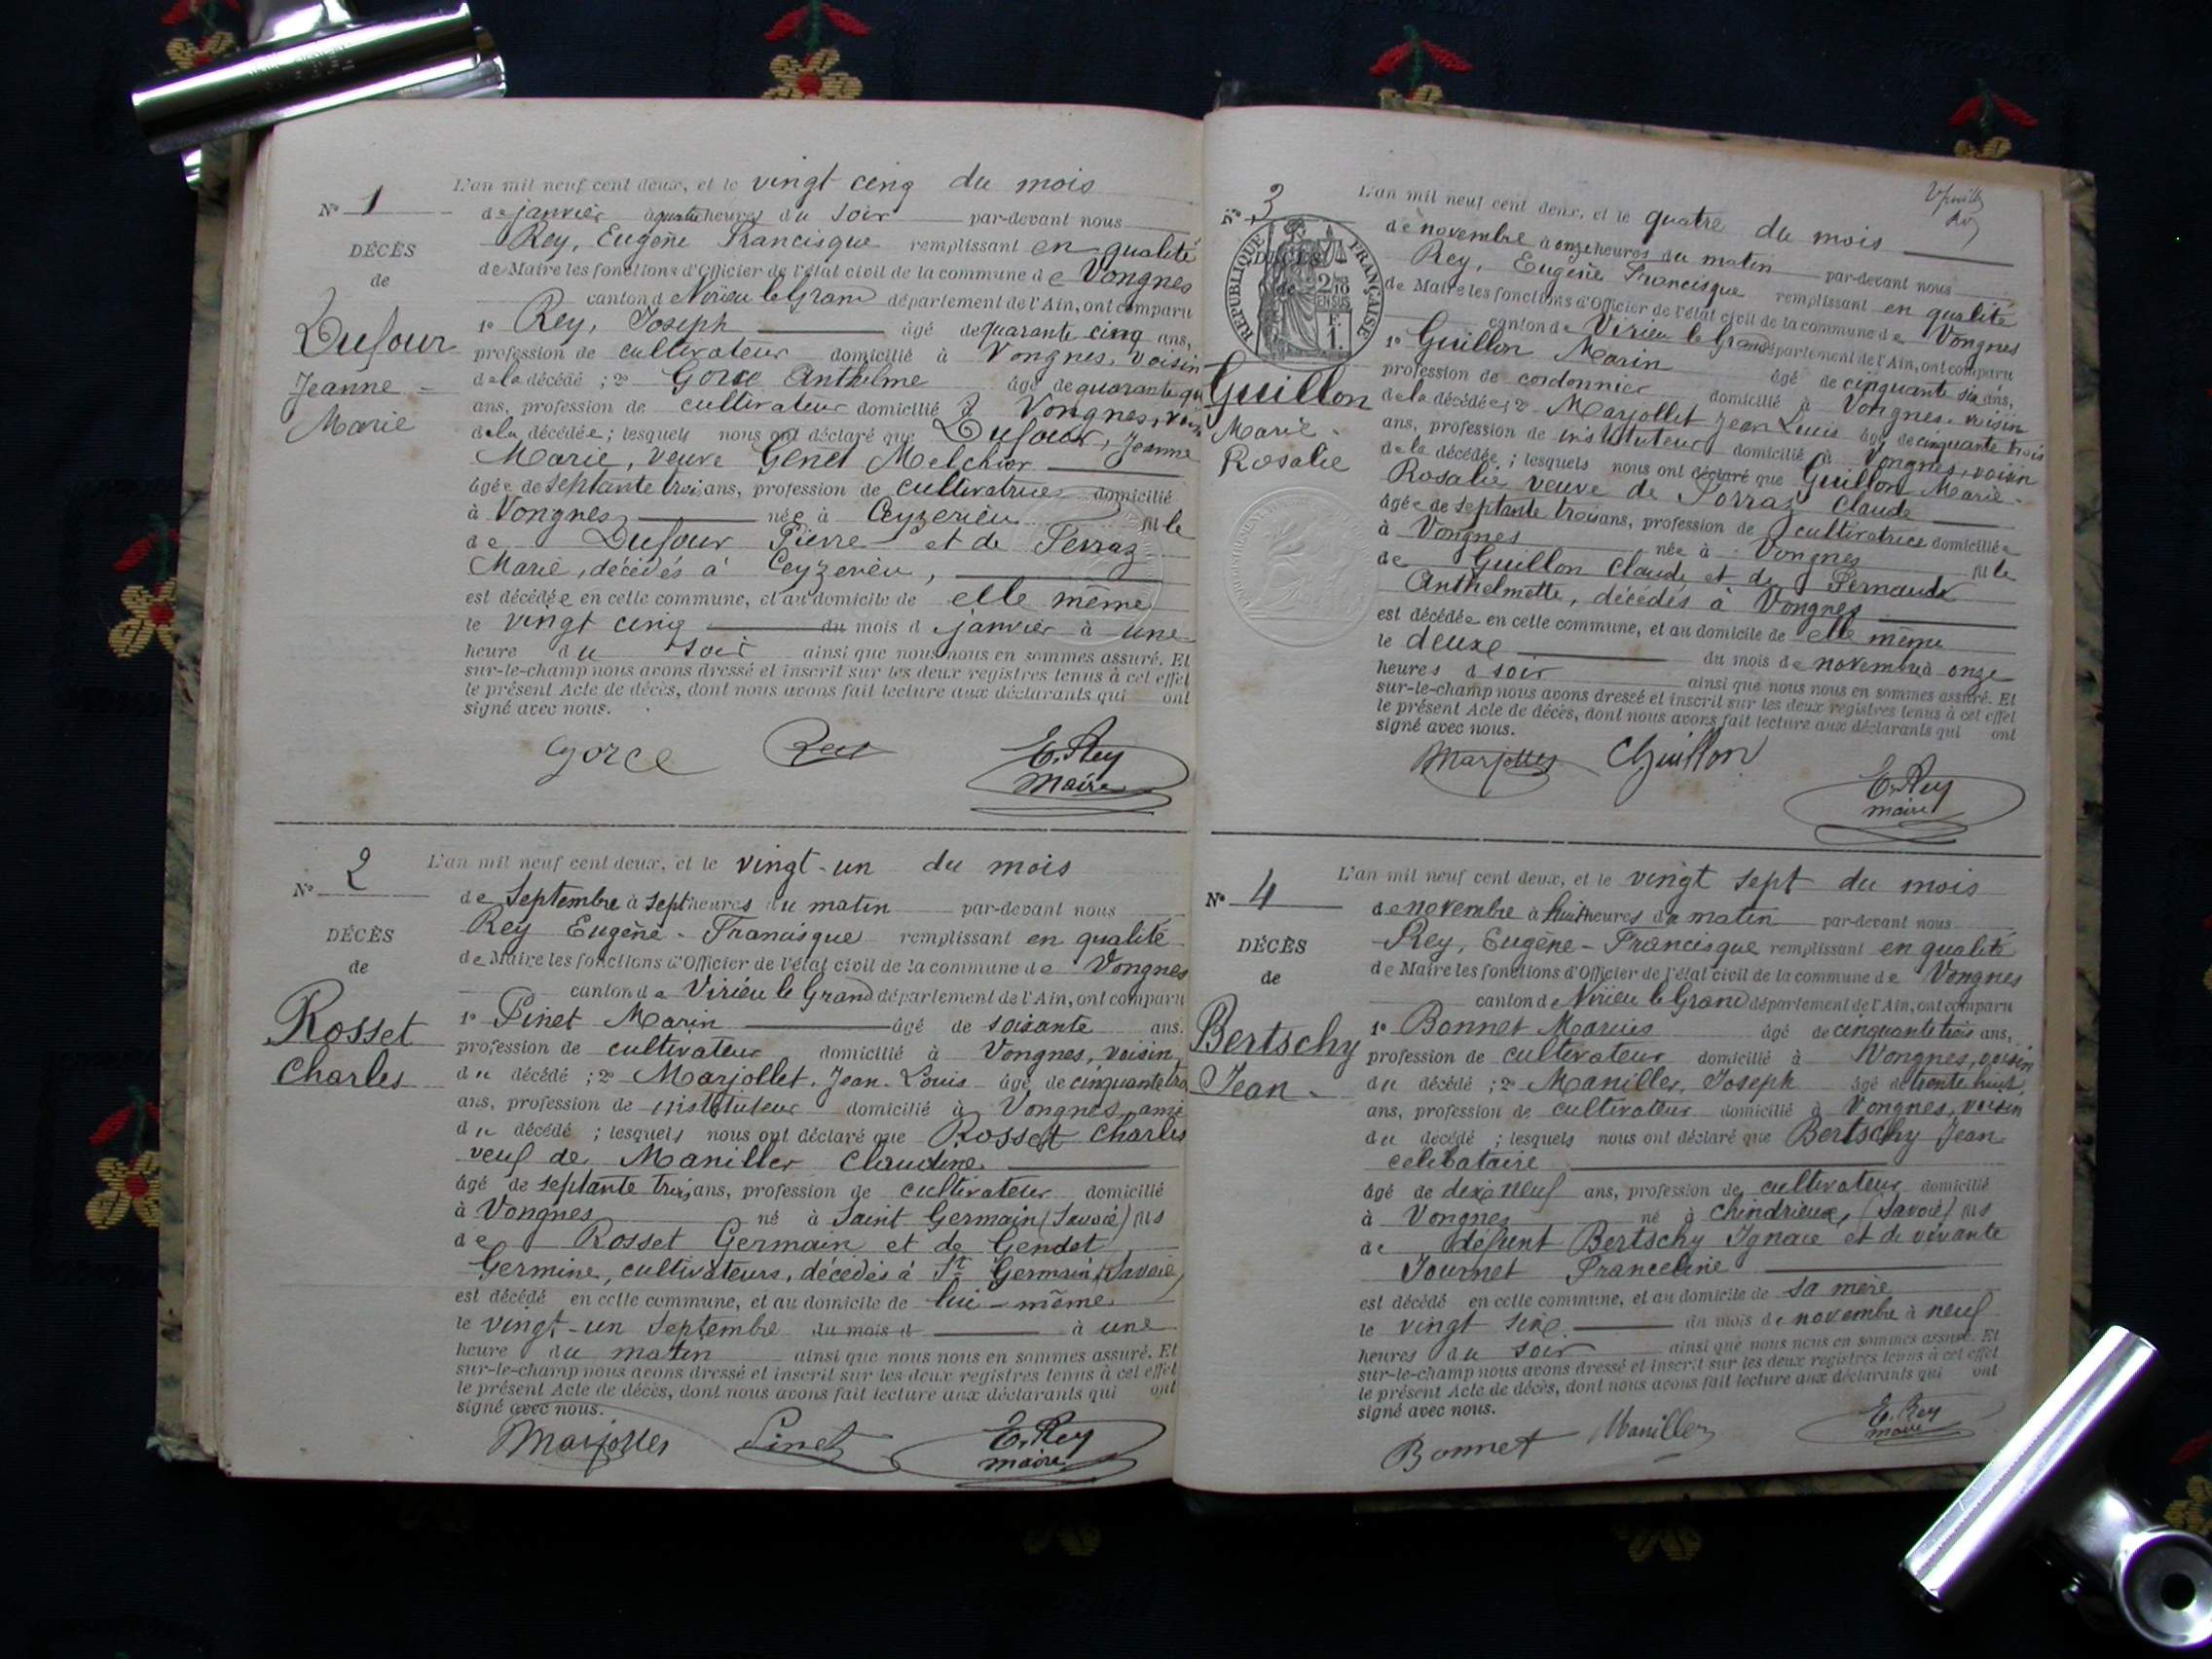 L'an mil neuf cent deux, et le vingt cinq du mois
N° 1
de janvier à quatre heures du soir par-devant nous
Rey, Eugène Francisque remplissant en qualité
DÉCÈS
de Maire les fonctions d'Officier de l'état civil de la commune de Vongnes
de
canton de Virieu le Grand département de l'Ain, ont comparu
1° Rey, Joseph âgé de quarante cinq ans,
Dufour
profession de cultivateur domicilié à Vongnes, voisin
Jeanne
de la décédé ; 2° Gorce Anthelme âgé de quarante
Marie
ans, profession de cultivateur domicilié à Vongnes,
de la décédée ; lesquels nous ont déclaré que Dufour, Jeanne
Marie, veuve Genet Melchior
âgée de septante trois ans, profession de cultivatrice domicilié
à Vongnes née à Ceyzerieu fille
de Dufour Pierre et de Perraz
Marie, décédés à Ceyzerieu,
est décédée en cette commune, et au domicile de elle même
le vingt cinq du mois d janvier à une
heure du soir ainsi que nous nous en sommes assuré. Et
sur-le-champ nous avons dressé et inscrit sur les deux registres tenus à cet effet
le présent Acte de décès, dont nous avons fait lecture aux déclarants qui ont
signé avec nous.
Gorce Rey E. Rey
Maire
L'an mil neuf cent deux, et le vingt-un du mois
N° 2
de Septembre à sept heures du matin par-devant nous
Rey Eugène-Francisque remplissant en qualité
DÉCÈS
de Maire les fonctions d'Officier de l'état civil de la commune de Vongnes
de
canton de Virieu le Grand département de l'Ain, ont comparu
Rosset
1° Pinet Marin âgé de soixante ans.
Charles
profession de cultivateur domicilié à Vongnes, voisin
du décédé ; 2° Marjollet, Jean-Louis âgé de cinquante
ans, profession de instituteur domicilié à Vongnes, ami
du décédé ; lesquels nous ont déclaré que Rosset Charles
veuf de Maniller Claudine
âgé de septante trois ans, profession de cultivateur domicilié
à Vongnes né à Saint Germain (Savoie) fils
de Rosset Germain et de Gendet
Germine, cultivateurs, décédés à St Germain (Savoie)
est décédé en cette commune, et au domicile de lui-même
le vingt-un Septembre du mois d à une
heure du matin ainsi que nous nous en sommes assuré. Et
sur-le-champ nous avons dressé et inscrit sur les deux registres tenus à cet effet
le présent Acte de décès, dont nous avons fait lecture aux déclarants qui ont
signé avec nous.
Marjollet Pinet E. Rey
maire
L'an mil neuf cent deux, et le quatre du mois
N° 3
de novembre à onze heures du matin par-devant nous
RÉPUBLIQUE FRANÇAISE
Rey, Eugène Francisque remplissant en qualité
DÉCÈS
de
2/10 EN SUS
F. 1.
de Maire les fonctions d'Officier de l'état civil de la commune de Vongnes
canton de Virieu le Grand département de l'Ain, ont comparu
1° Guillon Marin âgé de cinquante six ans,
Guillon
profession de cordonnier domicilié à Vongnes, voisin
Marie-
de la décédée ; 2° Marjollet Jean Louis âgé de cinquante trois
Rosalie
ans, profession de instituteur domicilié à Vongnes, voisin
de la décédée ; lesquels nous ont déclaré que Guillon Marie-
Rosalie veuve de Porraz Claude
âgée de septante trois ans, profession de cultivatrice domiciliée
à Vongnes née à Vongnes fille
de Guillon Claude et de Pernaude
Anthelmette, décédés à Vongnes
est décédée en cette commune, et au domicile de elle même
le deuxe du mois de novembre à onze
heures d soir ainsi que nous nous en sommes assuré. Et
sur-le-champ nous avons dressé et inscrit sur les deux registres tenus à cet effet
le présent Acte de décès, dont nous avons fait lecture aux déclarants qui ont
signé avec nous.
Marjollet Guillon E. Rey
maire
L'an mil neuf cent deux, et le vingt sept du mois
N° 4
de novembre à huit heures du matin par-devant nous
Rey, Eugène-Francisque remplissant en qualité
DÉCÈS
de Maire les fonctions d'Officier de l'état civil de la commune de Vongnes
de
canton de Virieu le Grand département de l'Ain, ont comparu
Bertschy
1° Bonnet Marius âgé de cinquante trois ans,
profession de cultivateur domicilié à Vongnes, voisin
Jean
du décédé ; 2° Maniller, Joseph âgé de trente huit
ans, profession de cultivateur domicilié à Vongnes, voisin
du décédé ; lesquels nous ont déclaré que Bertschy Jean
célibataire
âgé de dix neuf ans, profession de cultivateur domicilié
à Vongnes né à Chindrieux, (Savoie) fils
de défunt Bertschy Ignace et de vivante
Journet Franceline
est décédé en cette commune, et au domicile de sa mère
le vingt sixe du mois de novembre à neuf
heures du soir ainsi que nous nous en sommes assuré. Et
sur-le-champ nous avons dressé et inscrit sur les deux registres tenus à cet effet
le présent Acte de décès, dont nous avons fait lecture aux déclarants qui ont
signé avec nous.
Bonnet Maniller E. Rey
maire